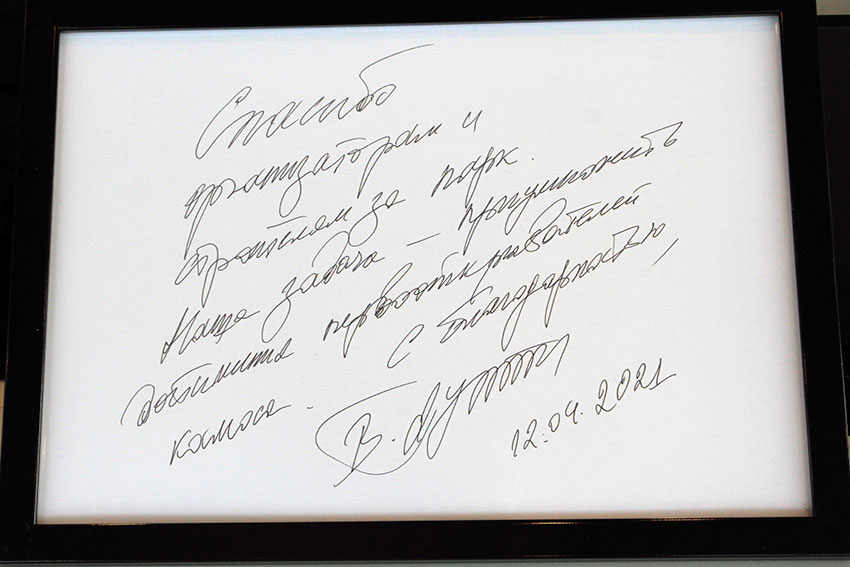 Спасибо
организаторам и
строителям за парк.
Наша задача – приумножить
достижения первооткрывателей
космоса. С благодарностью,
В. Путин
12.04.2021